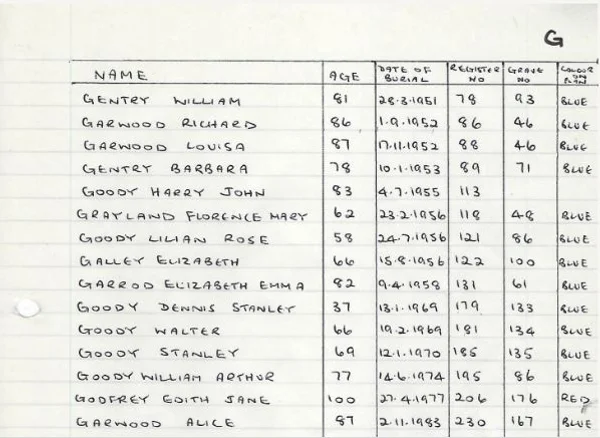 G
NAME AGE DATE OF BURIAL REGISTER NO GRAVE NO COLOUR ON PLAN
GENTRY WILLIAM 81 28.3.1951 78 93 BLUE
GARWOOD RICHARD 86 1.9.1952 86 46 BLUE
GARWOOD LOUISA 87 17.11.1952 88 46 BLUE
GENTRY BARBARA 78 10.1.1953 89 71 BLUE
GOODY HARRY JOHN 83 4.7.1955 113
GRAYLAND FLORENCE MARY 62 23.2.1956 118 48 BLUE
GOODY LILIAN ROSE 58 24.7.1956 121 86 BLUE
GALLEY ELIZABETH 66 15.8.1956 122 100 BLUE
GARROD ELIZABETH EMMA 82 9.4.1958 131 61 BLUE
GOODY DENNIS STANLEY 37 13.1.1969 179 133 BLUE
GOODY WALTER 66 19.2.1969 181 134 BLUE
GOODY STANLEY 69 12.1.1970 185 135 BLUE
GOODY WILLIAM ARTHUR 77 14.6.1974 195 86 BLUE
GODFREY EDITH JANE 100 27.4.1977 206 176 RED
GARWOOD ALICE 87 2.11.1983 230 167 BLUE